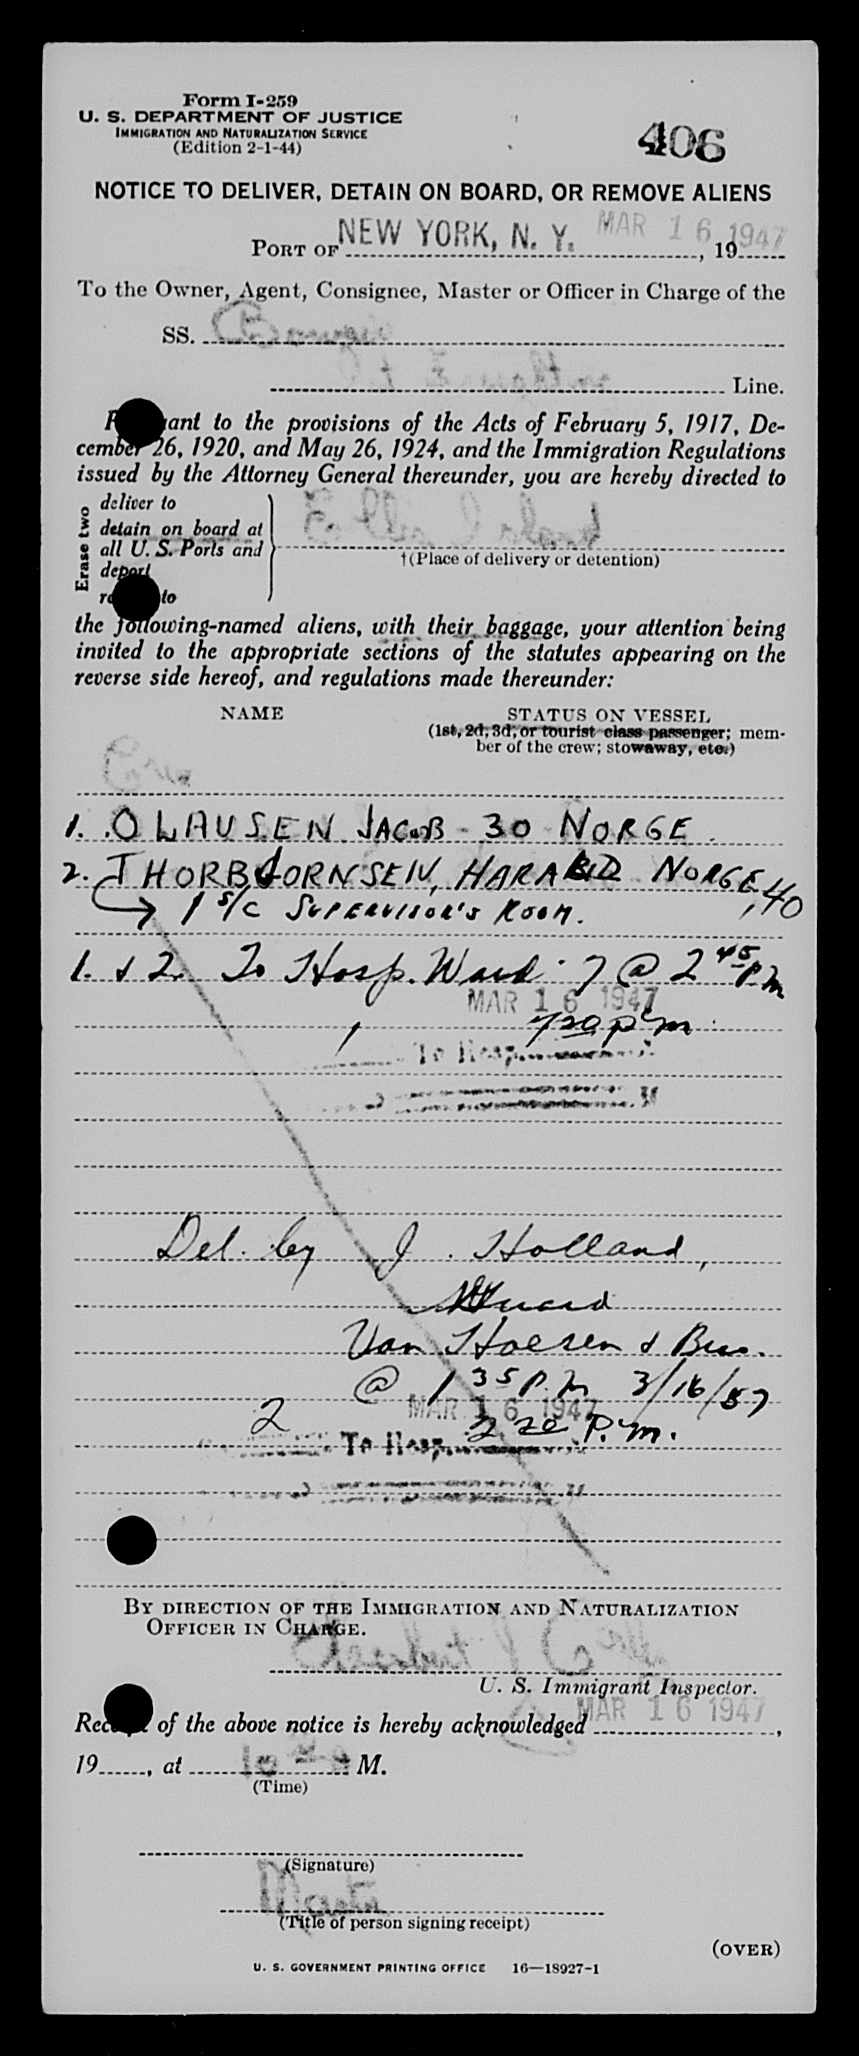 Form I-259
U. S. DEPARTMENT OF JUSTICE
IMMIGRATION AND NATURALIZATION SERVICE
(Edition 2-1-44)
406
NOTICE TO DELIVER, DETAIN ON BOARD, OR REMOVE ALIENS
PORT OF NEW YORK, N. Y. MAR 16 1947, 19
To the Owner, Agent, Consignee, Master or Officer in Charge of the
SS.
Line.
ant to the provisions of the Acts of February 5, 1917, De-
cember 26, 1920, and May 26, 1924, and the Immigration Regulations
issued by the Attorney General thereunder, you are hereby directed to
Erase two
deliver to
detain on board at
all U. S. Ports and
deport
to
†(Place of delivery or detention)
the following-named aliens, with their baggage, your attention being
invited to the appropriate sections of the statutes appearing on the
reverse side hereof, and regulations made thereunder:
NAME
STATUS ON VESSEL
(1st, 2d, 3d, or tourist class passenger; mem-
ber of the crew; stowaway, etc.)
1. OLAUSEN JACOB - 30 NORGE.
2. THORBJORNSEN, HARALD NORGE, 40
1 S/C SUPERVISOR'S ROOM.
1. & 2. To Hosp. Ward 7 @ 2 45 P.M
MAR 16 1947
1 720 P.M
To Hosp.
Del. by J. Holland,
Guard
Van Hoesen & Bro.
@ 1 35 P.M 3/16/57
MAR 16 1947
2 2 20 P.M.
To Hosp.
BY DIRECTION OF THE IMMIGRATION AND NATURALIZATION
OFFICER IN CHARGE.
U. S. Immigrant Inspector.
MAR 16 1947
Receipt of the above notice is hereby acknowledged ,
19 , at 10 M.
(Time)
(Signature)
Master
(Title of person signing receipt)
(OVER)
U. S. GOVERNMENT PRINTING OFFICE 16—18927-1